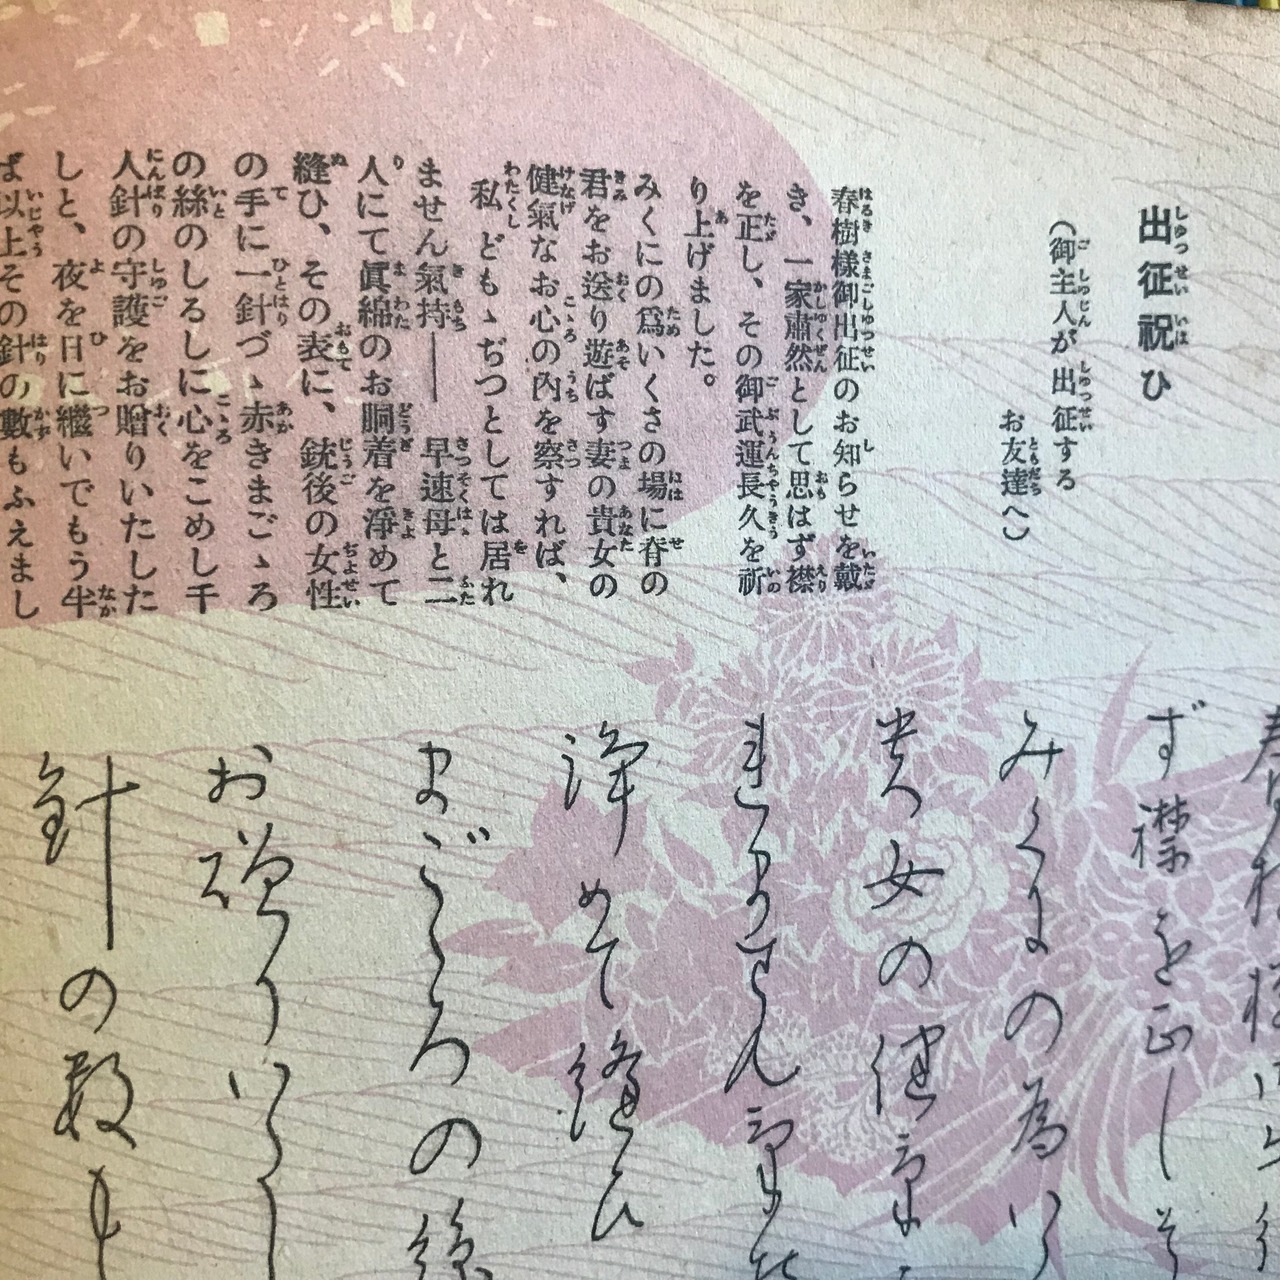 出征祝ひ
（御主人が出征する
お友達へ）
春樹樣御出征のお知らせを戴
き、一家肅然として思はず襟
を正し、その御武運長久を祈
り上げました。
みくにの爲いくさの場に脊の
君をお送り遊ばす妻の貴女の
健氣なお心の內を察すれば、
私どもゝぢつとしては居れ
ません氣持――早速母と二
人にて眞綿のお胴着を淨めて
縫ひ、その表に、銃後の女性
の手に一針づゝ赤きまごゝろ
の絲のしるしに心をこめし千
人針の守護をお贈りいたした
しと、夜を日に繼いでもう半
ば以上その針の數もふえまし
ず襟を正しそ
みくにの為い
貴女の健氣
ません氣
淨めて縫ひ
まごゝろの絲
お贈りいたし
針の数も